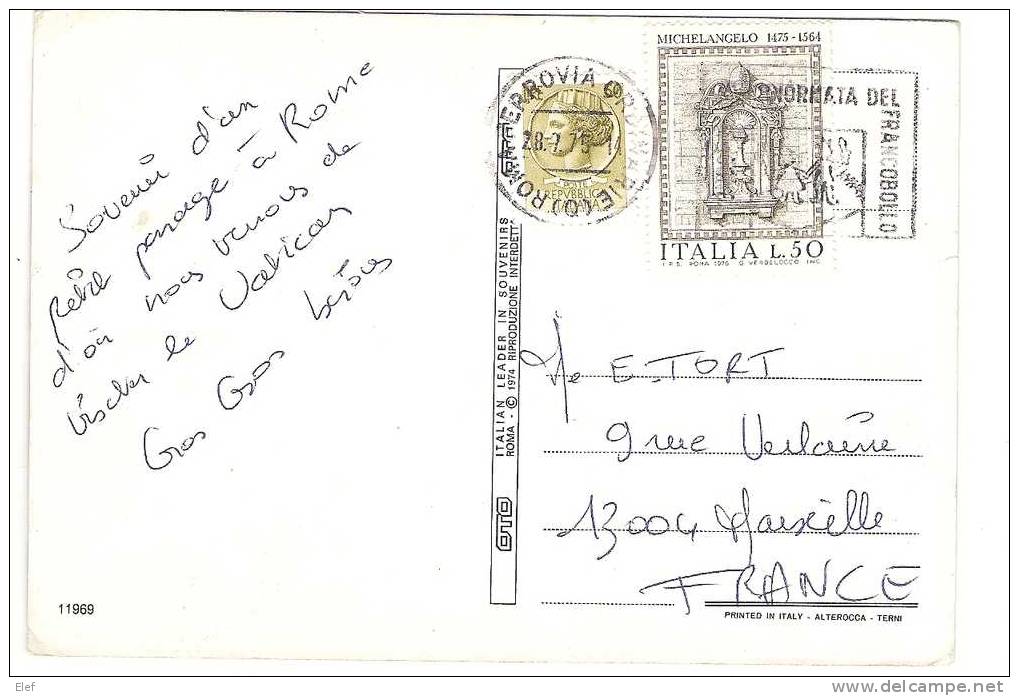 Souvenir d'un
petit passage à Rome
d'où nous venons de
visiter le Vatican
Gros Gros bisous
11969
OTO
ITALIAN LEADER IN SOUVENIRS
ROMA - © 1974 RIPRODUZIONE INTERDETTA
ROMA FERROVIA
28.7.75
POSTE
REPVBBLICA
MICHELANGELO 1475-1564
ITALIA L.50
I.P.S. ROMA 1975 G. VERDELOCCO INC.
GIORNATA DEL
FRANCOBOLLO
Me E. TORT
9 rue Verlaine
13004 Marseille
FRANCE
PRINTED IN ITALY - ALTEROCCA - TERNI
Elef
delcampe.net